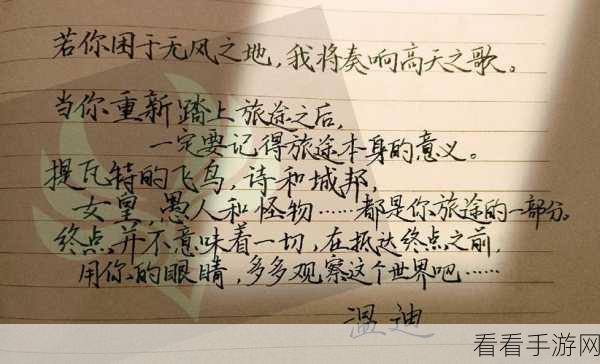 若你困于无风之地，我将奏响高天之歌。
当你重新踏上旅途之后，
一定要记得旅途本身的意义。
提瓦特的飞鸟，诗和城邦，
女皇，愚人和怪物……都是你旅途的一部分。
终点并不意味着一切，在抵达终点之前，
用你的眼睛，多多观察这个世界吧……
温迪
看看手游网
www.kkzj.com